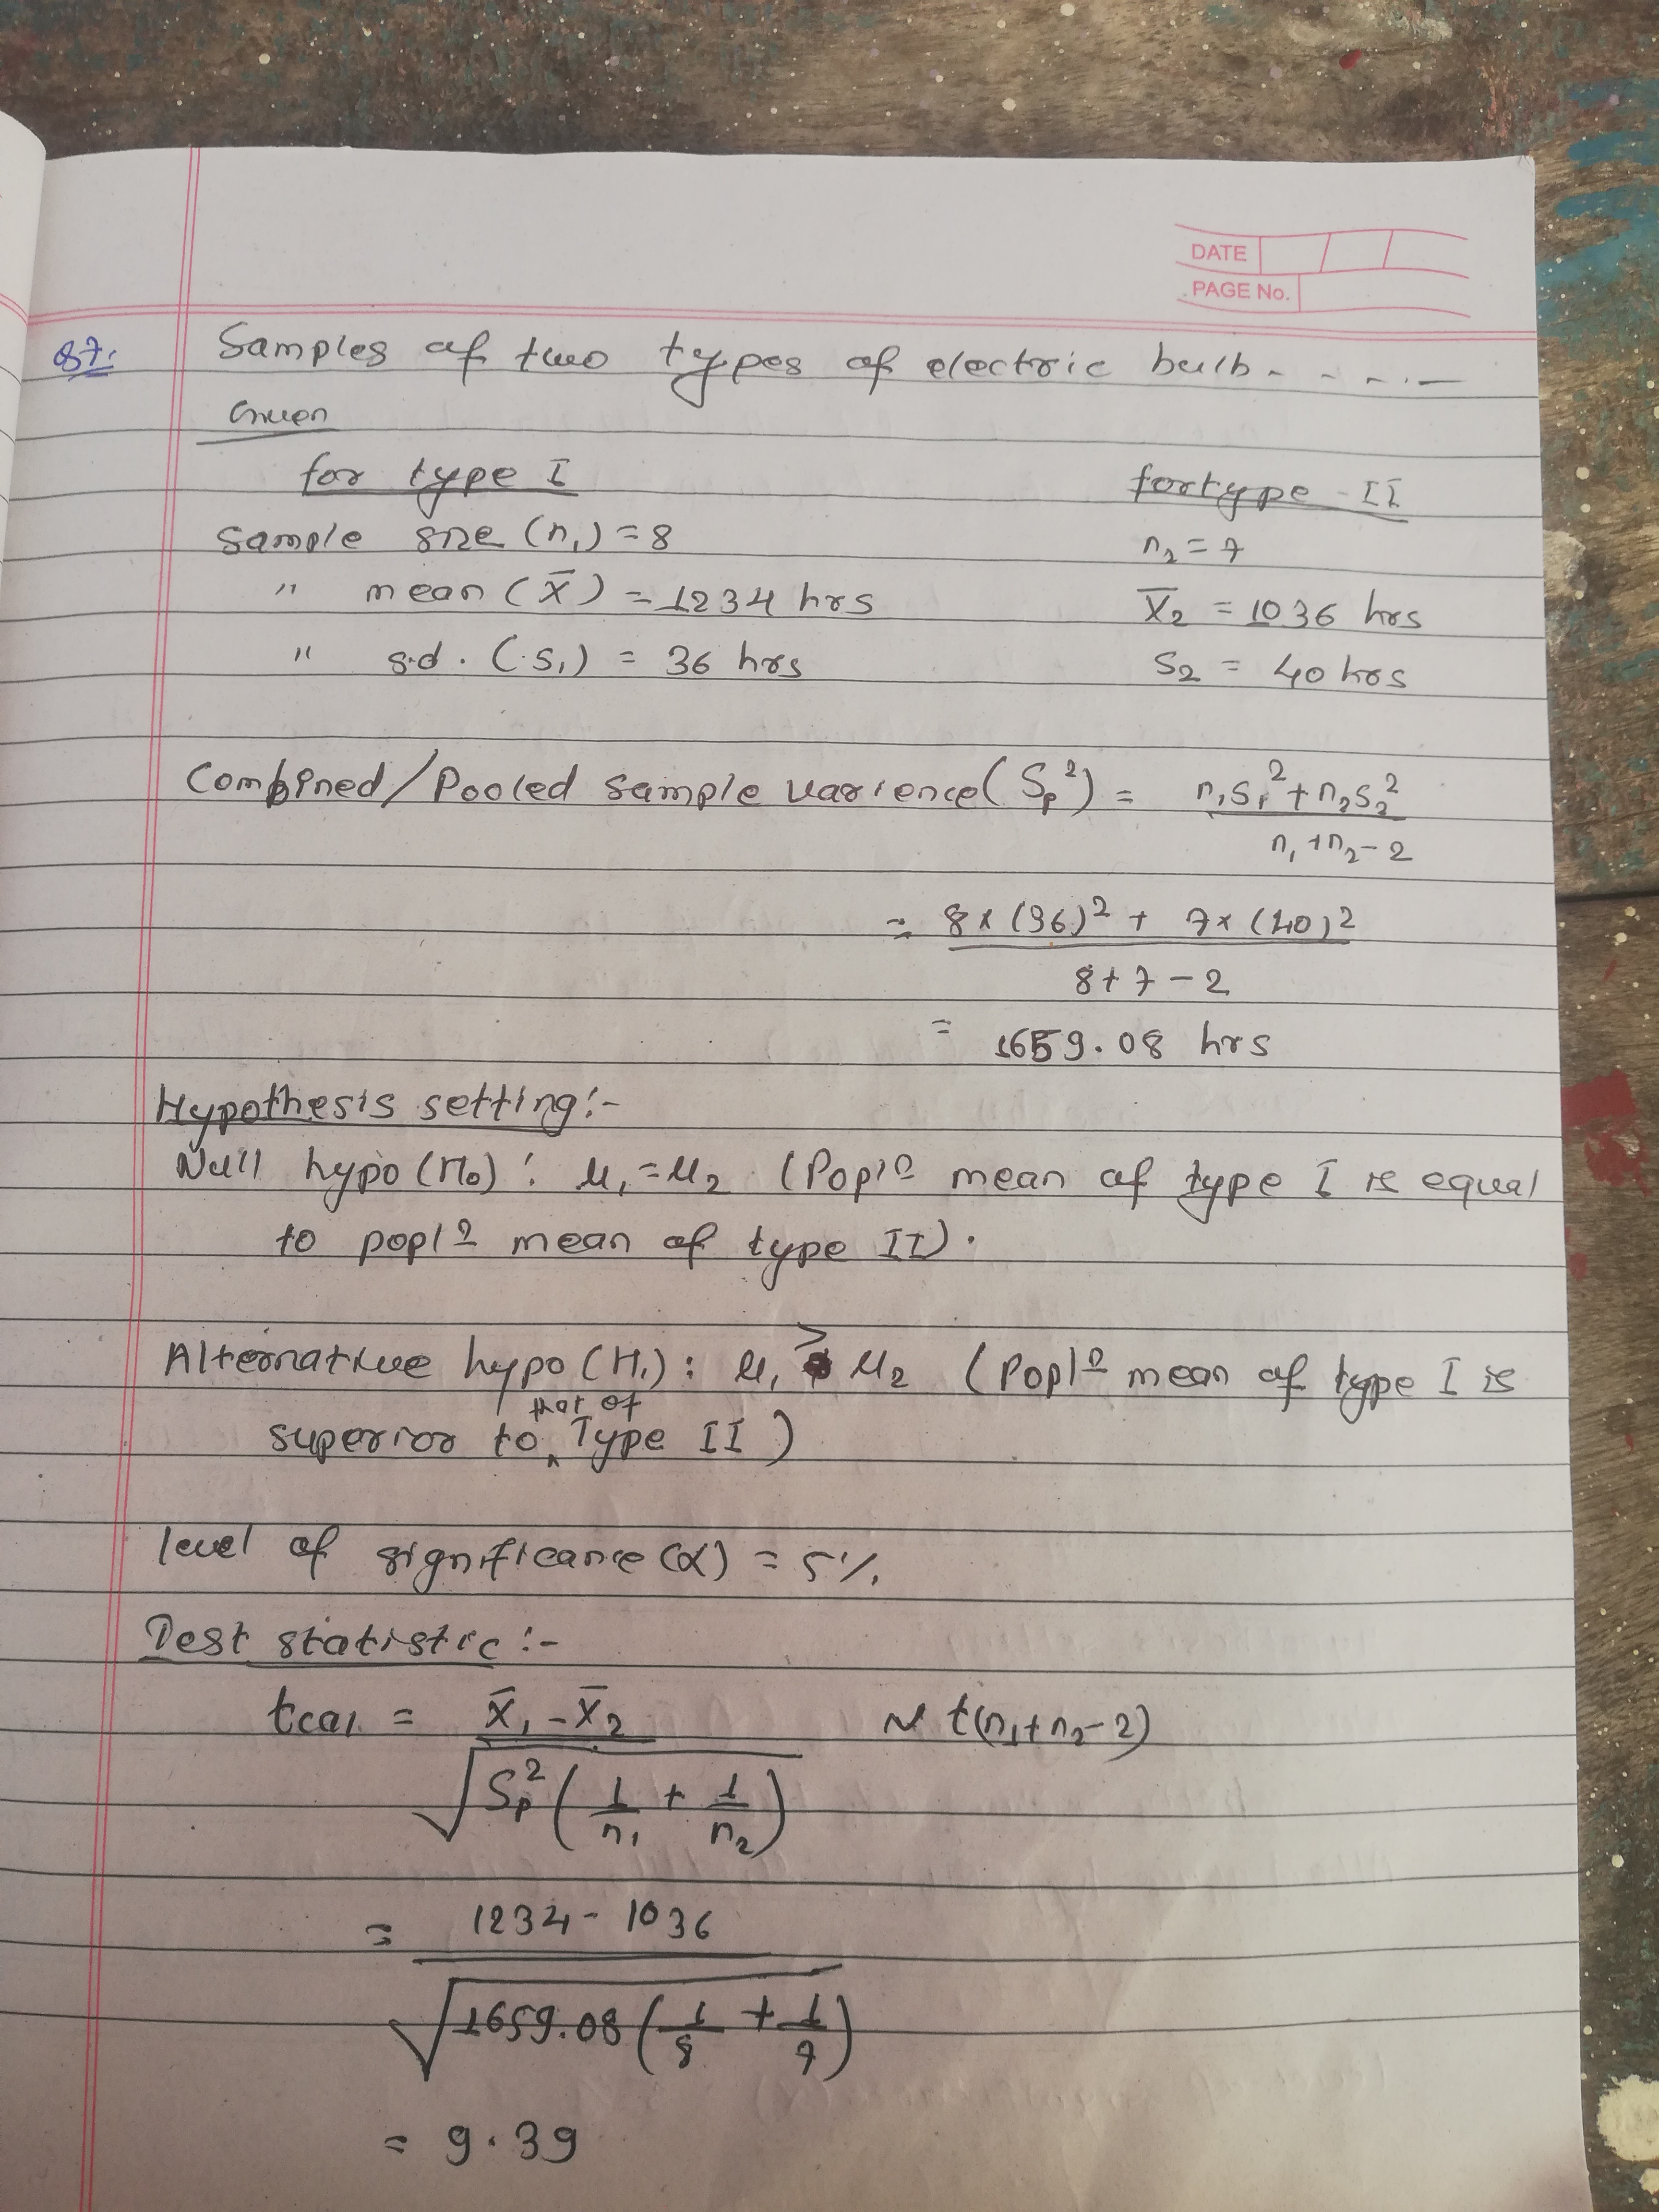 DATE
PAGE No.
Q7. Samples of two types of electric bulb- - - - . —
Given
for type I for type - II
Sample size (n₁) = 8 n₂ = 7
" mean (X̄) = 1234 hrs X̄₂ = 1036 hrs
" s.d. (s₁) = 36 hrs S₂ = 40 hrs
Combined/Pooled sample varience (Sp²) = n₁s₁² + n₂s₂²
n₁ + n₂ - 2
= 8 × (36)² + 7 × (40)²
8 + 7 - 2
= 1659.08 hrs
Hypothesis setting :-
Null hypo (H₀) : μ₁ = μ₂ (Poplⁿ mean of type I is equal
to poplⁿ mean of type II).
Alternative hypo (H₁) : μ₁ > μ₂ (Poplⁿ mean of type I is
superior to that of Type II)
level of significance (α) = 5%.
Test statistic :-
tcal = X̄₁ - X̄₂ ~ t(n₁ + n₂ - 2)
√Sp² (1/n₁ + 1/n₂)
= 1234 - 1036
√1659.08 (1/8 + 1/7)
= 9.39